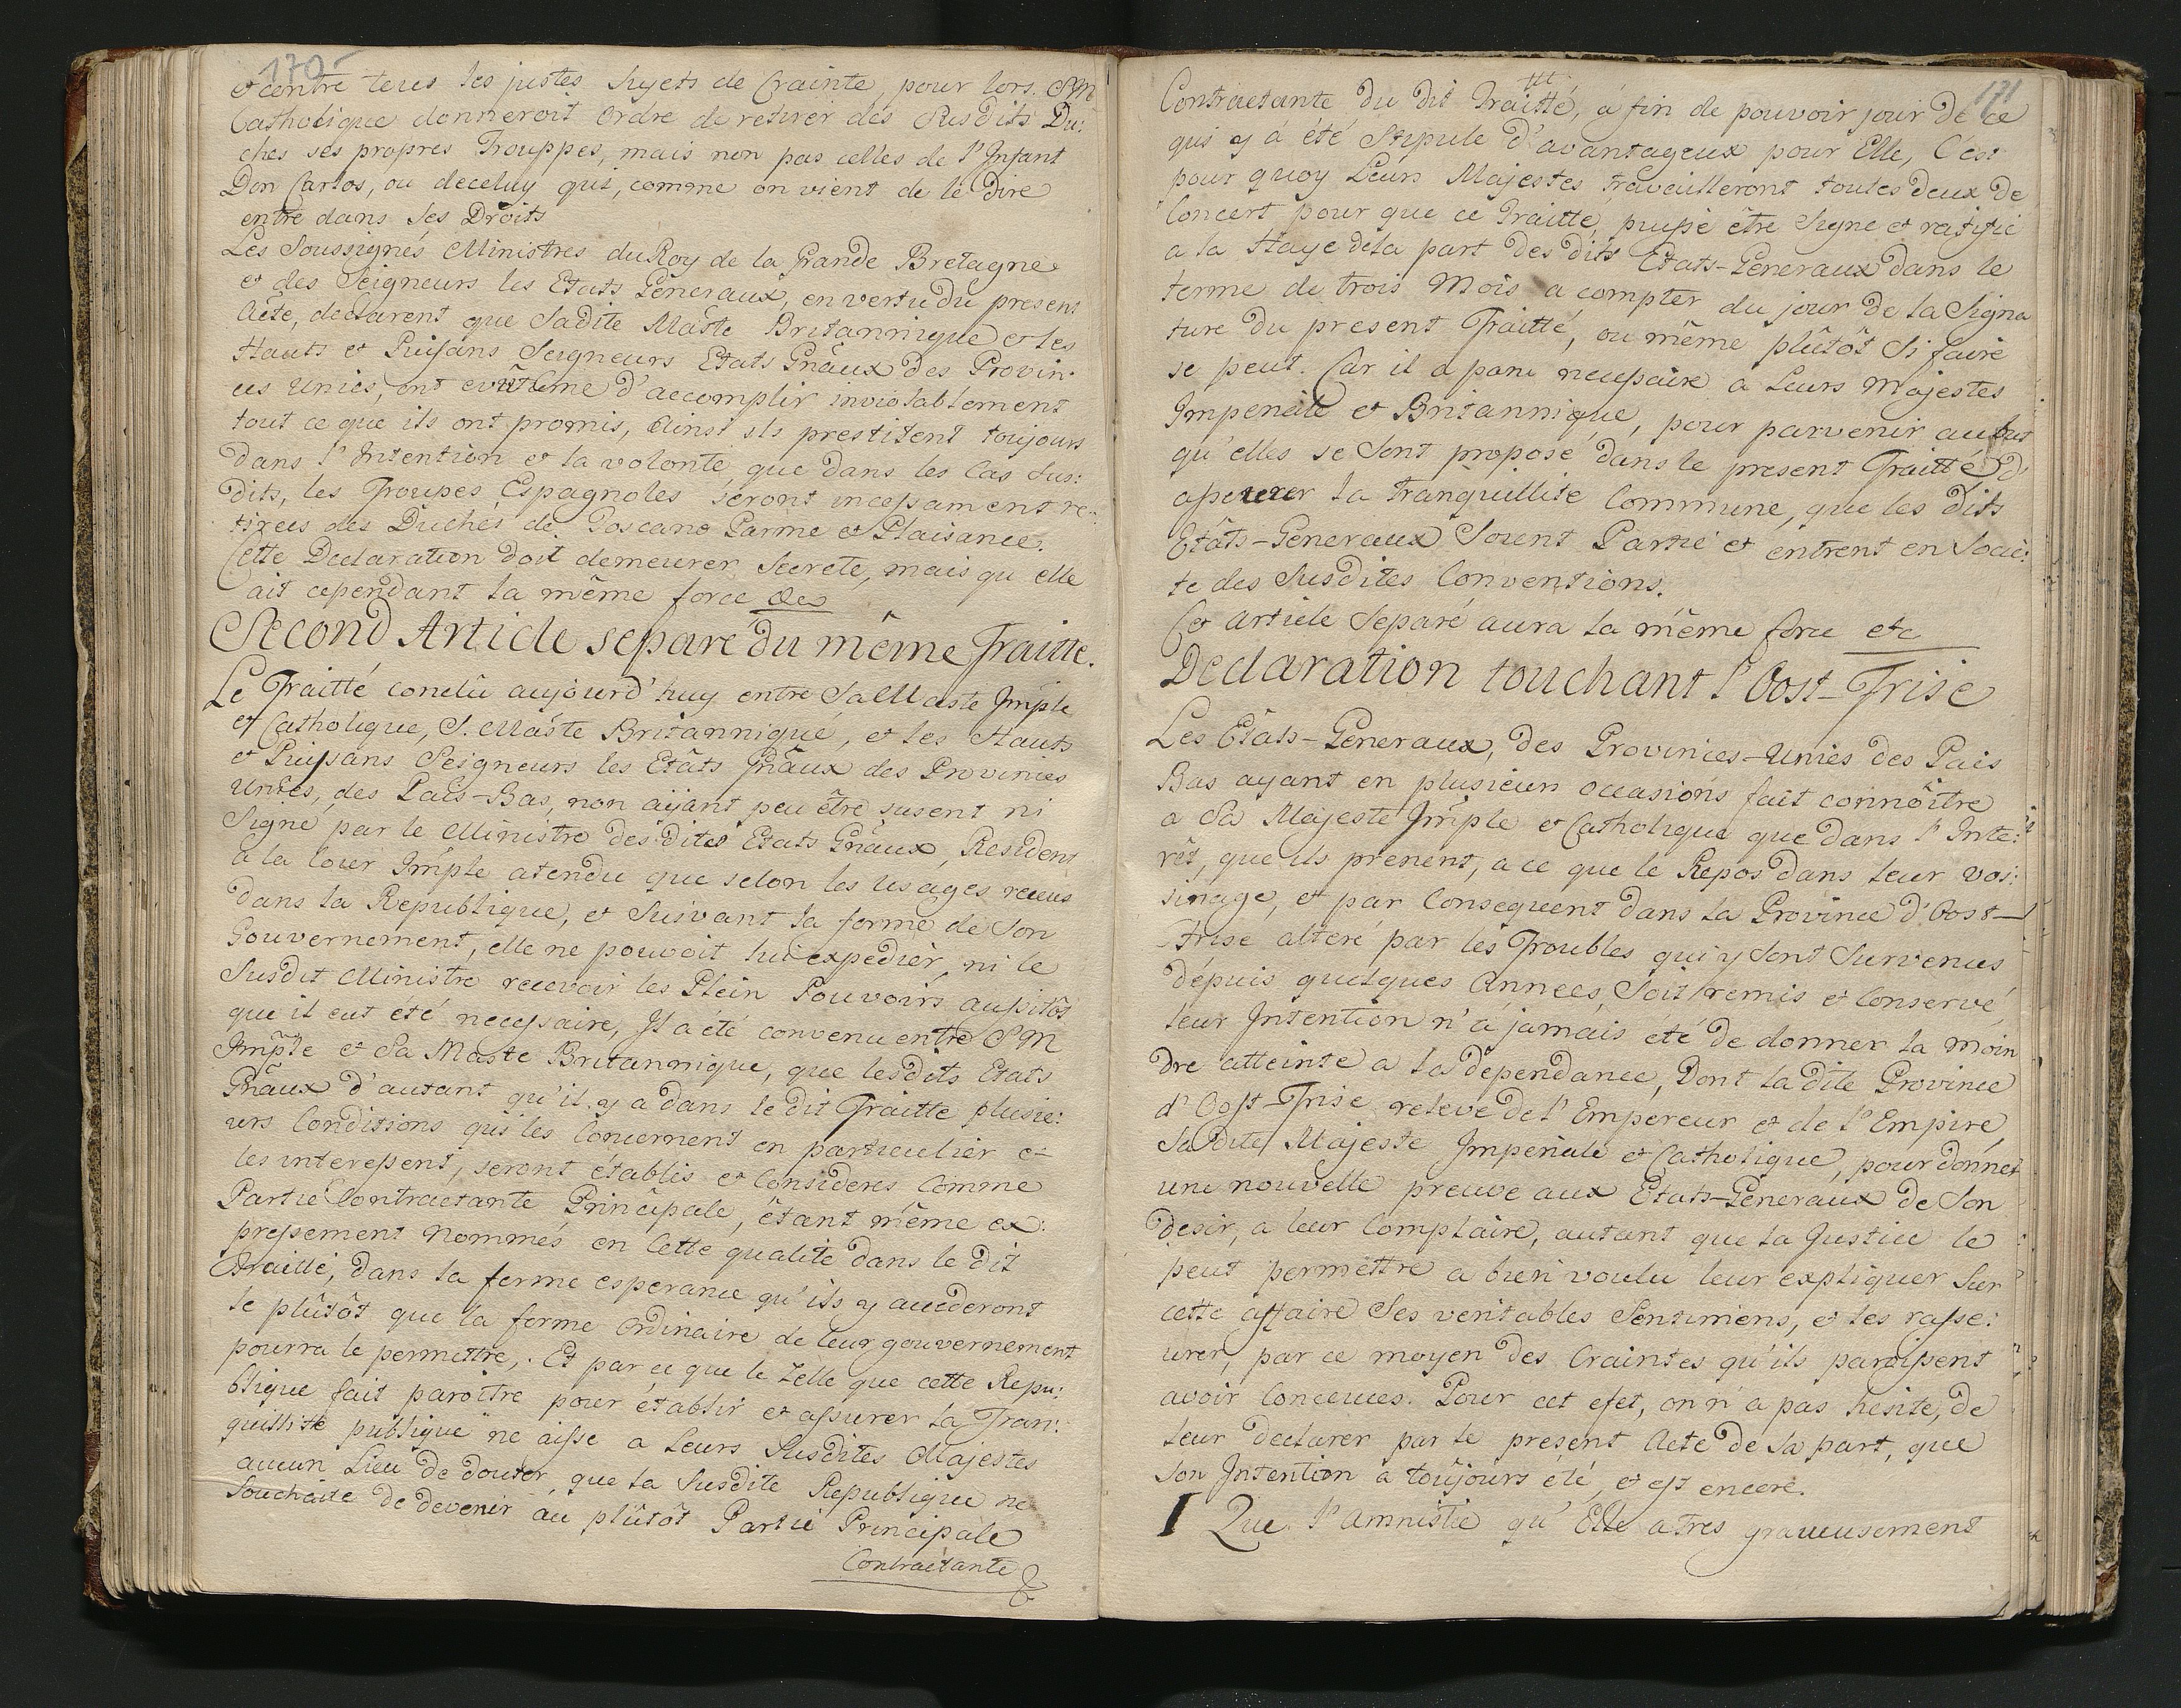 170
et contre tous les justes Sujets de Crainte, pour lors S M
Catholique donneroit Ordre de retirer des Susdits Du:
ches ses propres Trouppes, mais non pas celles de l'Infant
Don Carlos, ou deceluy qui, comme on vient de le dire
entre dans ses Droits
Les Soussignés Ministres du Roy de la Grande Bretagne
et des Seigneurs les Etats Géneraux, en vertu du present
Acte, declarent que Sadite Maste Britannique et les
Hauts et Puissans Seigneurs Etats Gnaux des Provin:
ces Unies, ont d'accomplir inviolablement
tout ce que ils ont promis, Ainsi ils prestitent toujours
dans l'Intention et la volonté, que dans les Cas Sus:
dits, les Troupes Espagnoles seront incessament re:
tirées des Duchés de Toscane Parme et Plaisance.
Cette Declaration doit demeurer Secrete, mais qu elle
ait cependant la même force &c
Second Article separé du même Traitte.
Le Traitté conclû aujourd'huy entre Sa Maste Imple
et Catholique, S. Maste Britannique, et les Hauts
et Puissans Seigneurs les Etâts Gnaux des Provinces
Unies, des Païs-Bas, non aijant peu être susent ni
Signé par le Ministre desdites Etats Gnaux, Resident
a la Cour Imple atendu que selon les usages receus
dans la Republique, et Suivant la forme de Son
Gouvernement, elle ne pouvoit lui expedier, ni le
Susdit Ministre recevoir les Plein Pouvoirs aussitôt
que il eut été necessaire, Il a été convenu entre S M
Imple et Sa Maste Britannique, que lesdits Etats
Gnaux d'autant qu'il y a dans le dit Traitte plusie:
urs Conditions qui les Concernent en particulier et
les interessent, seront établis et Consideres Comme
Partie Contractante Principale, étant même ex:
pressement Nommés en Cette qualité dans le dit
Traitté, dans la ferme esperance qu'ils y accederont
le plûtôt que la forme Ordinaire de leur gouvernement
pourra le permettre,. Et par ce que le Zelle que cette Repu:
blique fait paroître pour établir et assurer la Tran:
quillite publique ne aisse a Leurs Susdites Majestes
aucun Lieu de douter, que la Susdite Republique ne
Souchaite de devenir au plûtôt Partie Principale
Contractante
171
Contractante du dit Traitté, á fin de pouvoir jouir de ce
qui y á été Stipule d'avantageux pour Elle, C'est
pour quoy Leurs Majestes travailleront toutes deux de
Concert pour que ce Traitte, puisse être Signe et ratifié
a la Haye de la part des dits Etats-Generaux dans le
terme de trois Mois a compter du jour de la Signa
ture du present Traitté, ou même plûtôt Si faire
se peut. Car il a paru necessaire a Leurs Majestes
Imperiale et Britannique, pour parvenir au but
qu'elles se Sont proposé dans le present Traitté, d'
asseurer la Tranquillite Commune, que les dits
Etâts-Generaux Soient Partié et entrent en Socie:
te des Susdites Conventions.
Cet Article Separé aura la même force etc
Declaration touchant l'Oost-Frise
Les Etâts-Generaux, des Provinces-Unies des Païs
Bas ayant en plusieurs occasions fait connôitre
a Sa Majeste Imple et Catholique que dans l'Inte:
rêt, que ils prenent, a ce que le Repos dans leur voi:
sinage, et par Consequent dans la Province d'Oost-
Frise alteré par les Troubles qui y Sont Survenus
dépuis quelques Annees, Soit remis et Conservé,
leur Intention n'a jamais été de donner la moin
dre atteinte a la dependance, Dont la dite Province
d'Oost-Frise releve de l'Empereur et de l'Empire,
Sadite Majeste Imperiale et Catholique, pour donner
une nouvelle preuve aux Etats-Generaux de Son
desir, a leur Complaire, autant que la Justice le
peut permettre a bien voulu leur expliquer Sur
cette affaire Ses veritables Sentimens, et les rasse:
urer, par ce moyen des Craintes qu'ils paroissent
avoir Conceues. Pour cet efet, on n'a pas hésite, de
leur declarer par le present Acte de Sa part, que
Son Intention a toûjours été, et est encore.
1 Que l'amnistie qu'Elle a tres gracieusement